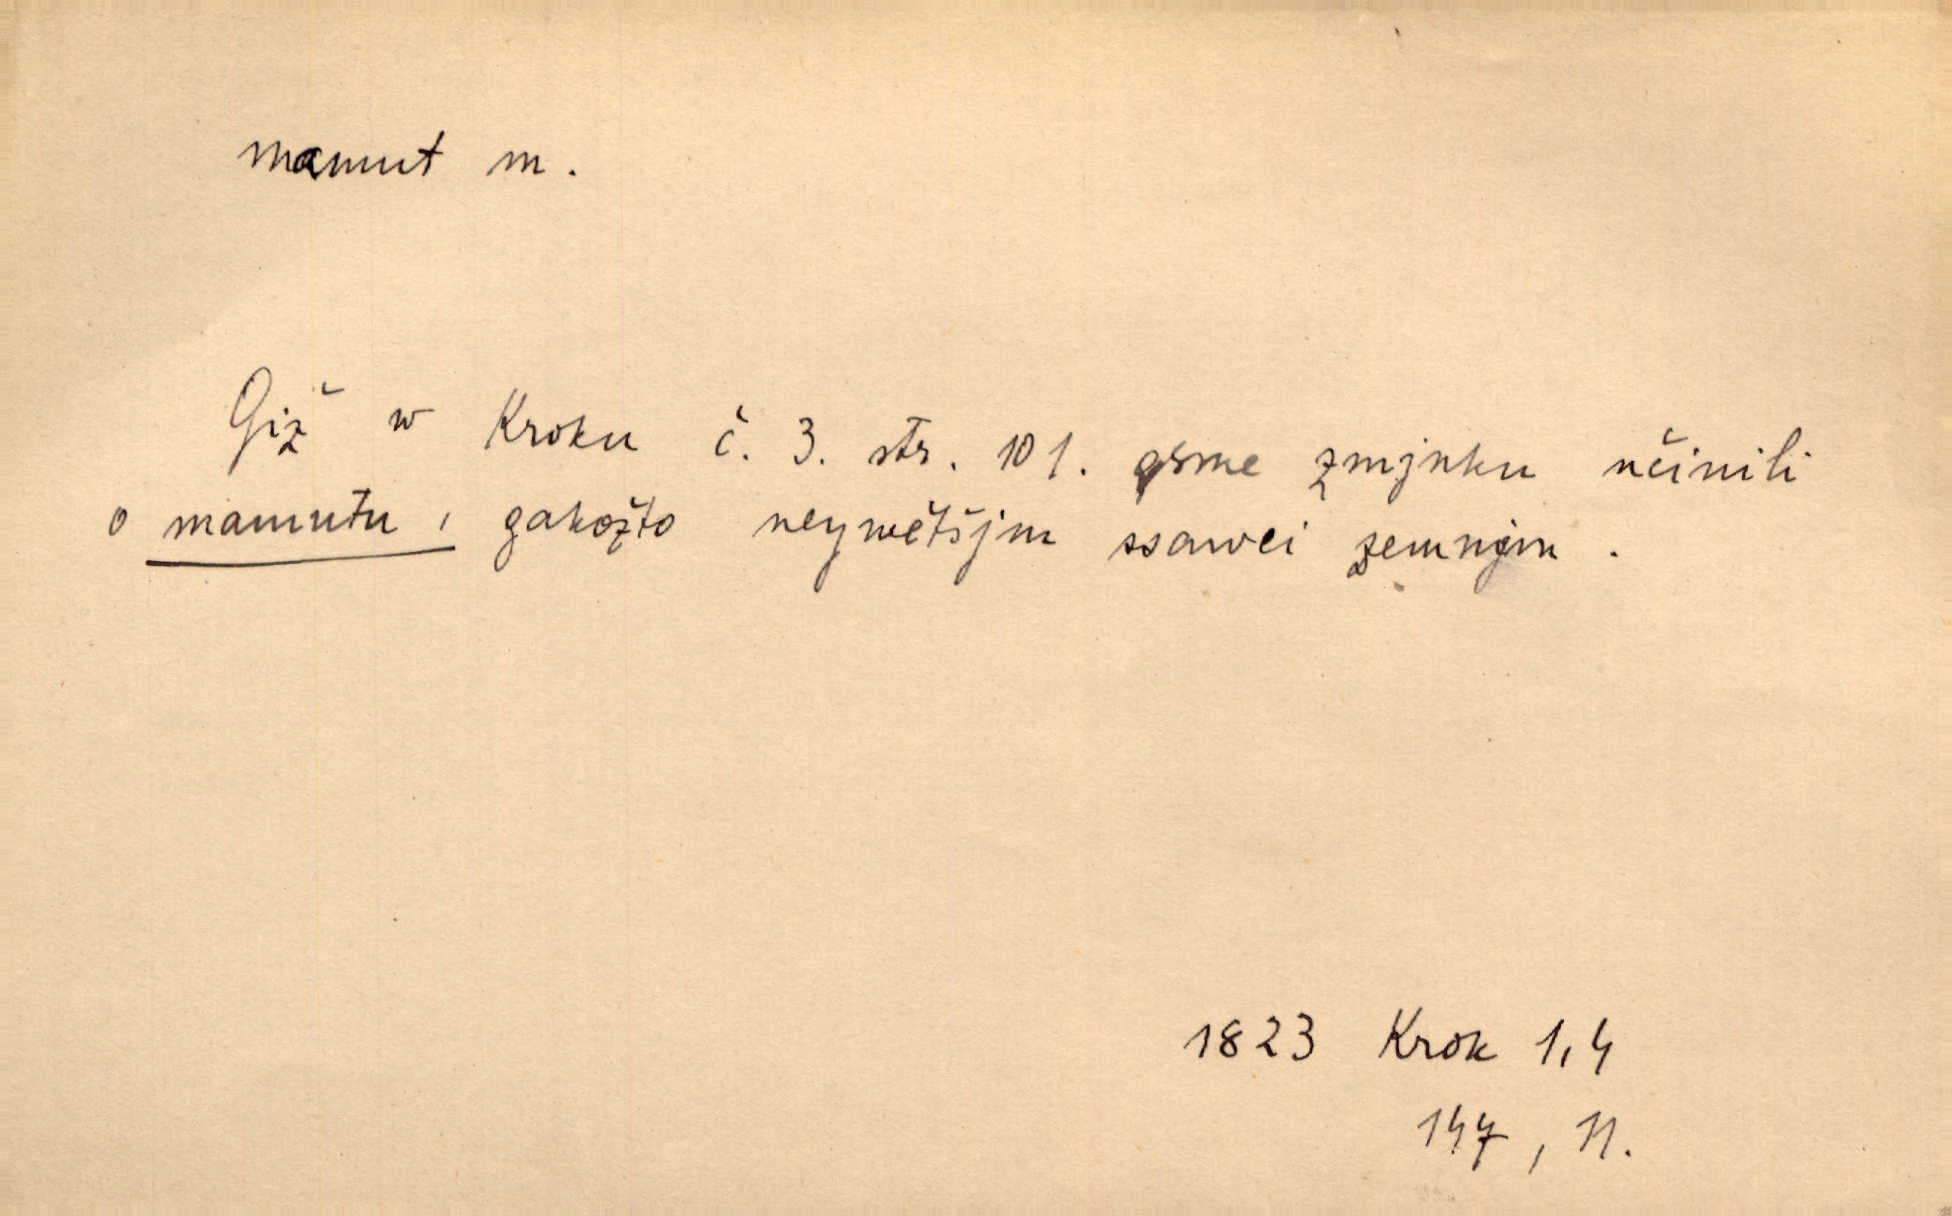 mamut m.
Giž w Kroku č. 3. str. 101. gsme zmjnku učinili
o mamutu, gakožto neywětšjm ssawci zemnjm.
1823 Krok 1,4
147, N.